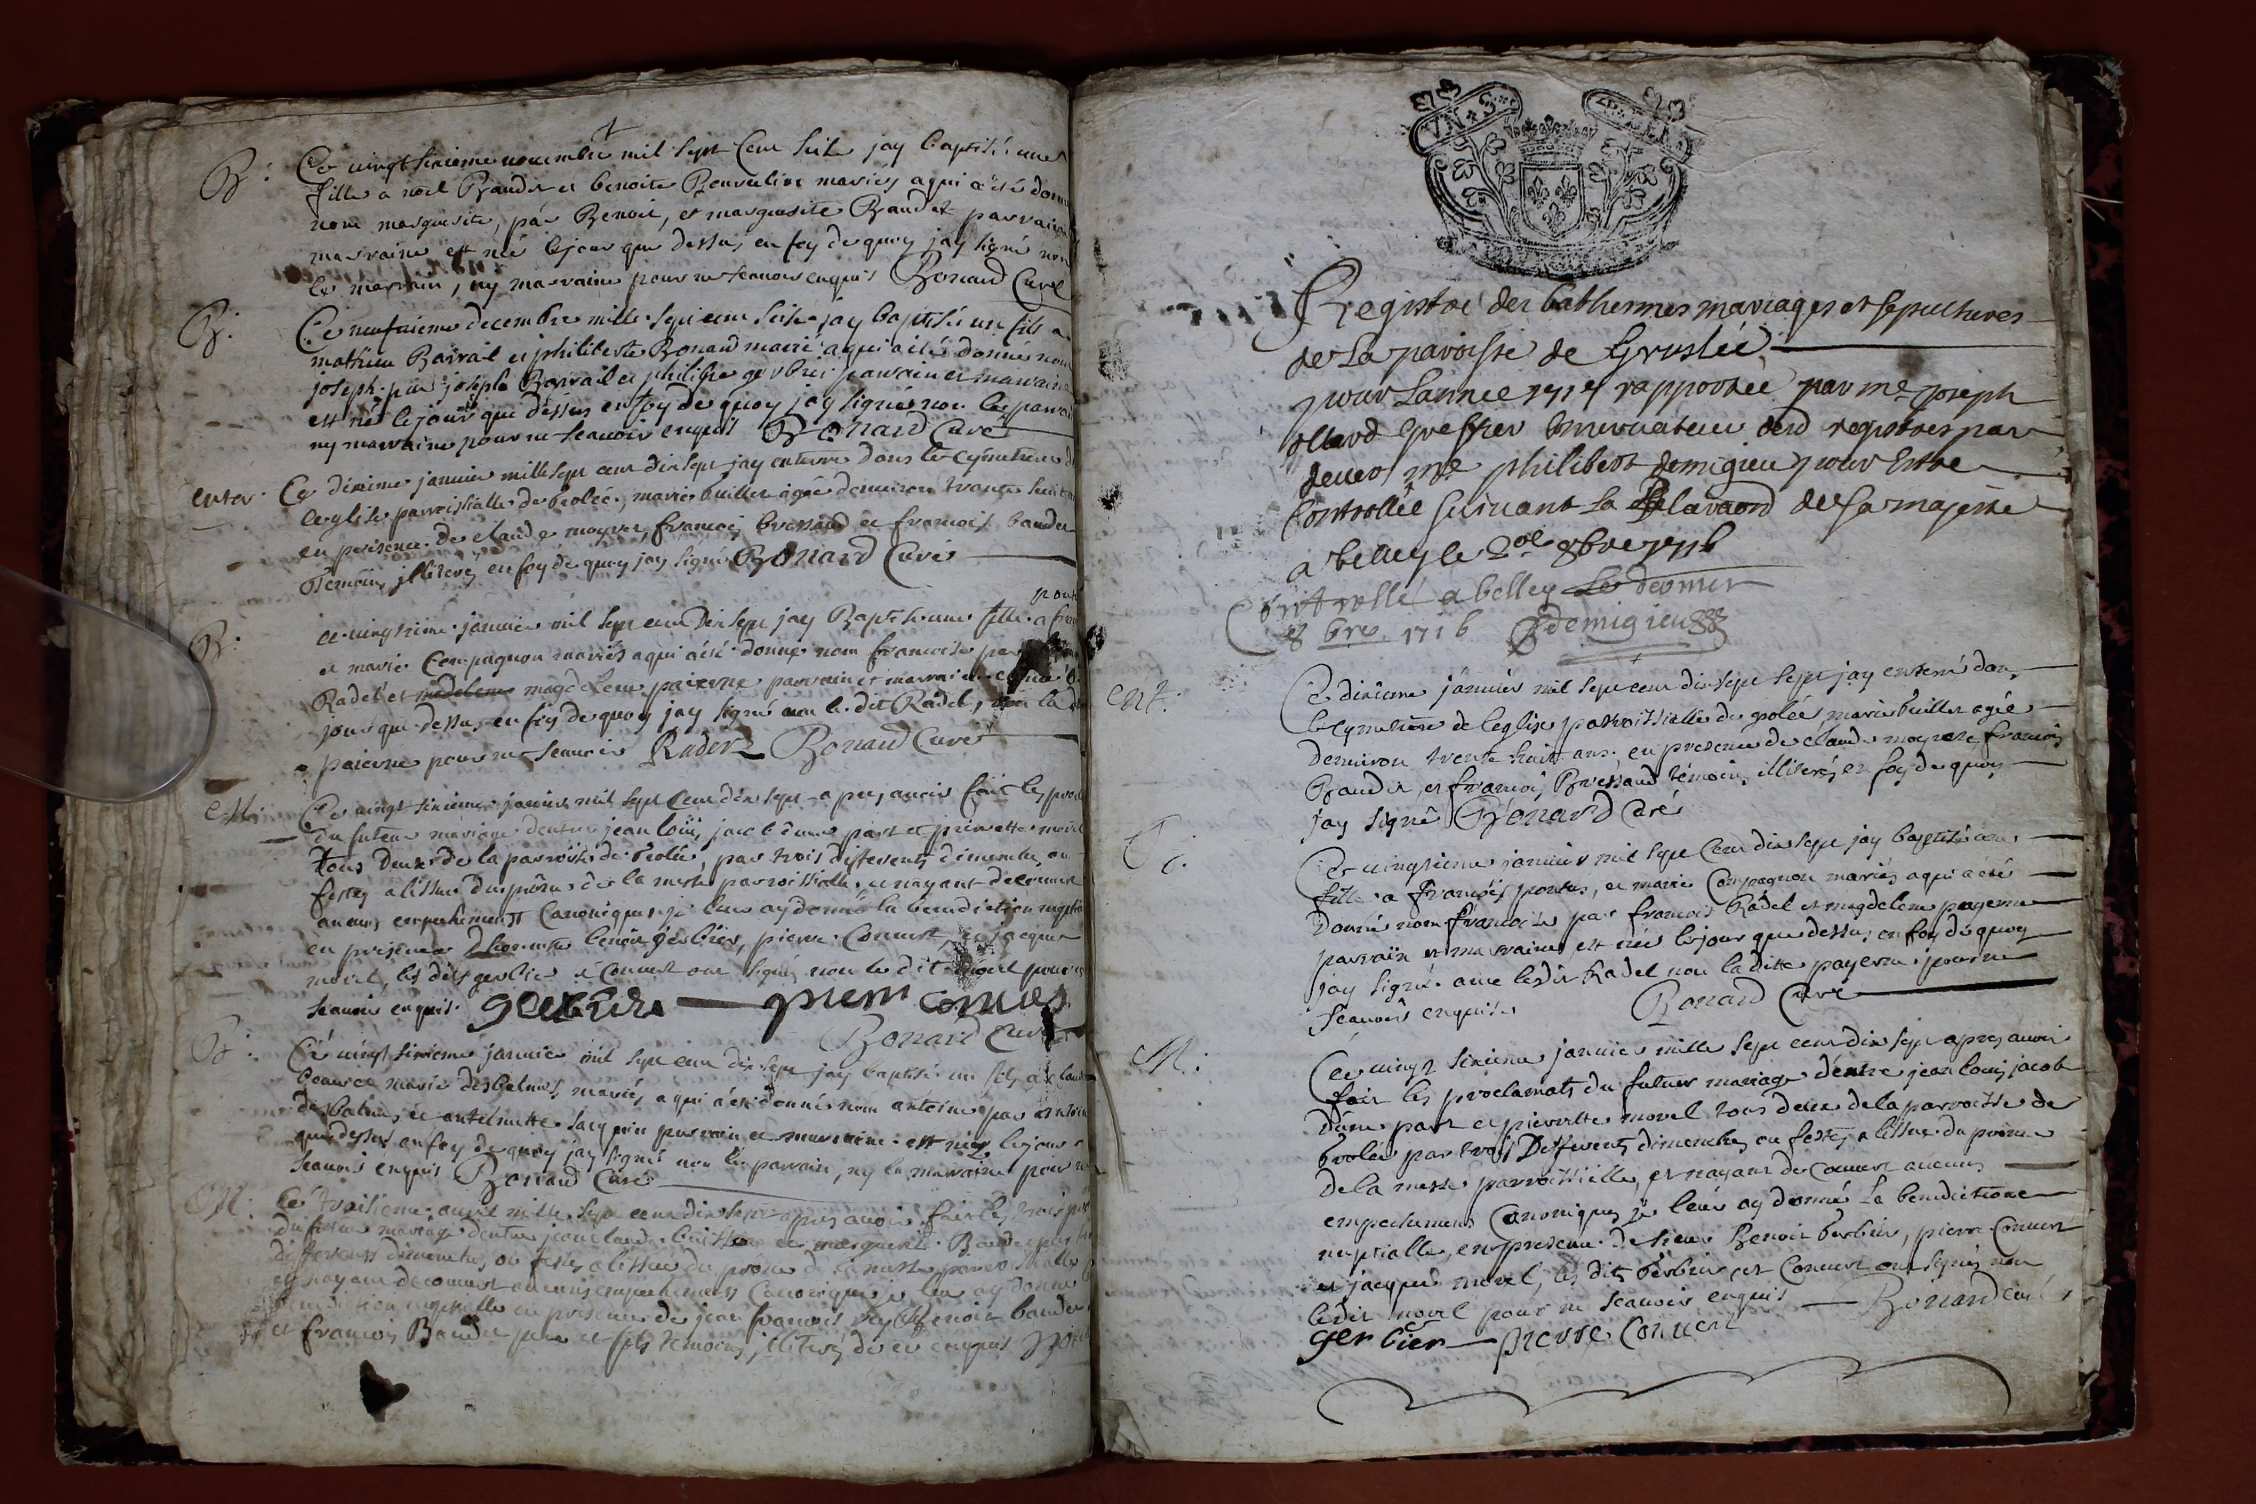 B: Ce vingt sixieme novembre mil sept cent seize jay baptisé une
fille a noel Baudet et benoite mariés a qui a été donné
nom marguerite, par Benoit, et marguerite Baudet parrain
marraine est née le jour que dessus en foy de quoy jay signé non
le parrain, ny marraine pour ne scauoir enquis Bonard Curé
B: Ce neufuieme decembre mille sept cent seize jay baptisé un fils a
mathieu Barral et philiberte Bonard marié a qui a été donné nom
joseph par joseph Barral et parrain et marraine
est né le jour que dessus en foy de quoy jay signé non les parrain
ny marraine pour ne scauoir enquis Bonard Curé
enter. Ce dixime januier mille sept cent dix sept jay enterré dans le cymetiere de
leglise parroissialle de brolée, marie buillet agée denuiron trante huit
en presence de claude mayere, francois bressaud et francois baudet
temoins illiterés en foy de quoy jay signé Bonard Curé
pont
B: ce vingtieme januier mil sept cent dix sept jay Baptisé une fille a
et marie Compagnon mariés a qui a été donné nom francoise par
Radel et magdeleine paierne parrain et marraine
jour que dessus en foy de quoy jay signé auec le dit Radel, non la
paierne pour ne scauoir Radel Bonard Curé
M. Ce vingt sixieme januier mil sept cent dix sept apres auoir fait les
du futeur mariage dentre jean loüis jacob dune part et pierrette morel
tous deux de la parroisse de brolée, par trois differents dimenches ou
festes a lissue du prône de la messe parroissialle, et nayant decouuert
aucuns empechements Canoniques je leur ay donné la benediction nuptialle
en presence de benoit gerbier, pierre Conuert, et jacques
morel, les dits gerbier et Conuert ont signés non le dit morel pour ne
scauoir enquis. gerbier pierre conuert
Bonard Curé
B: Ce vingt sixieme januier mil sept cent dix sept jay baptisé un fils a
et marie desbalmes mariés a qui a été donné nom antoine par antoine
desbalmes et anthelmette Jacquin parrain et marraine est né le jour
que dessus en foy de quoy jay signé non les parrain, ny la maraine pour ne
scauoir enquis Bonard Curé
M: Ce troisieme auril mille sept cent dix sept apres auoir fait les trois
du futur mariage dentre jean claude et marguerite Baudet par
differents dimenches ou festes a lissue du prône de la messe parroissialle
et nayant decouuert aucuns empechements Canoniques je leur ay donné
benediction nuptialle en presence de jean francois Rey Benoit baudet
et francois Baudet pere et fils temoins illiterés de ce enquis
Registre des bathesmes mariages et sepultures
de La paroisse de Groslée
pour Lannee 1717 rapportée par me joseph
ollard greffier Conseruateur desd registres par
deuers me philibert demigieu pour Estre
Controllée suiuant la declaraon de sa majesté
a belley le 2oe 8bre 1716
Controllé a belley Le
8bre 1716 demigieu
ent: Ce dixième januier mil sept cent dix sept jay enterré dans
le cymetiere de leglise parroissialle de grolée marie buillet agée
denuiron trente huit ans. en presence de claude mayere francois
Baudet et francois Bressaud témoins illiterés en foy de quoy
jay signé Bonard Curé
B. Ce vingtieme januier mil sept cent dix sept jay baptisé une
fille a francois pontus, et marie Compagnon mariés a qui a été
donné nom francoise par francois Radel et magdelene payerne
parrain et marraine, est née le jour que dessus en foy de quoy
jay signé auec ledit Radel non laditte payerne pour ne
scauoir enquise Bonard Curé
M: Ce vingt sixieme januier mille sept cent dix sept apres auoir
fait les proclamats du futur mariage dentre jean louis jacob
dúne part et pierrette morel tous deux de la parroisse de
brolée par trois Differents dimenches ou festes a lissue du prône
de la messe parroissialle, et nayant decouuert aucuns
empechemens Canoniques je leur ay donné la benedictione
nuptialle, en presence de sieur Benoit berbier, pierre Conuert
et jacques morel, les dits berbier et Conuert ont signés non
ledit morel pour ne scauoir enquis Bonard Curé
gerbier pierre Conuert